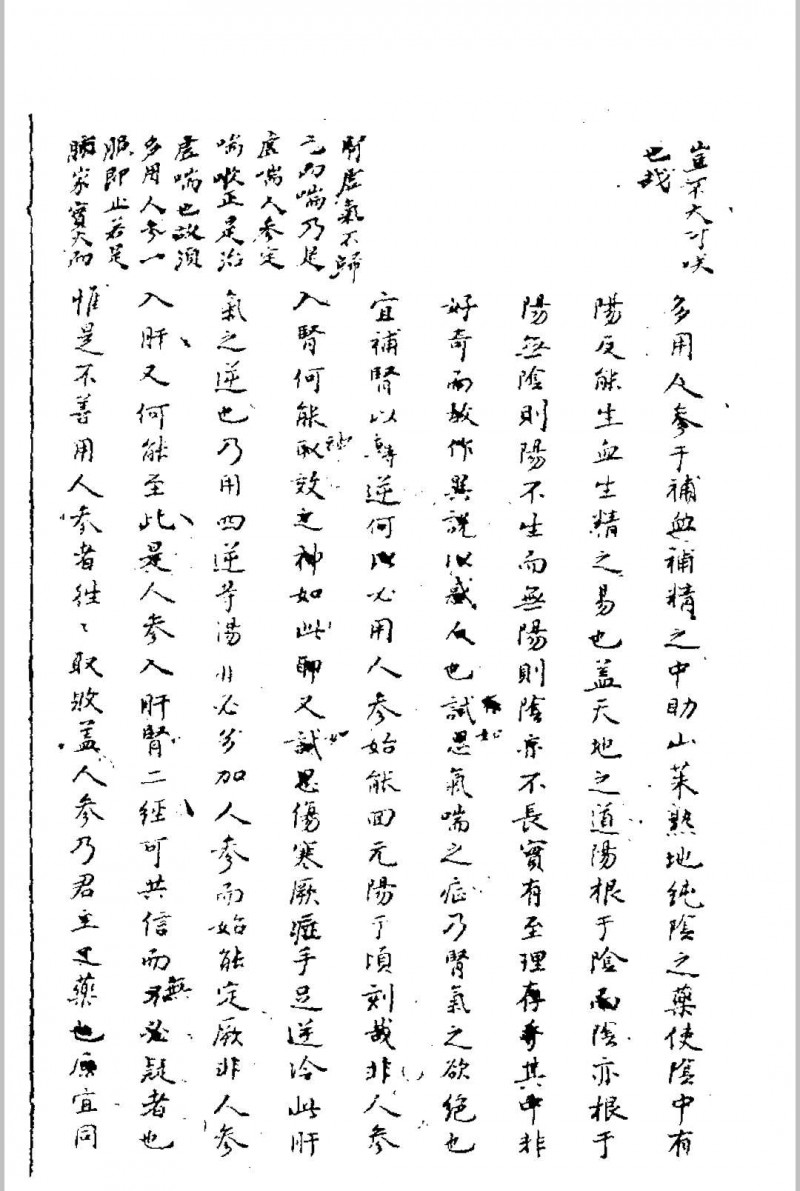 豈不大可咲
也哉
腎虛氣不歸
元而喘乃是
虛喘人參定
喘嗽正是治
虛喘也故須
多用人參一
服即止若是
肺家實火而
多用人參于補血補精之中助山茱熟地純陰之藥使陰中有
陽反能生血生精之易也盖天地之道陽根于陰而陰亦根于
陽無陰則陽不生而無陽則陰亦不長實有至理存乎其中非
好奇而故作異說以惑人也試思氣喘之症乃腎氣之欲絕也
宜補腎以轉逆何以必用人參始能回元陽于頃刻哉非人參
入腎何能取效之神如此又試思傷寒厥症手足逆冷此肝
氣之逆也乃用四逆等湯亦必多加人參而始能定厥非人參
入肝又何能至此是人參入肝腎二經可共信而無疑者也
惟是不善用人參者往々取敗盖人參乃君主之藥也原宜同